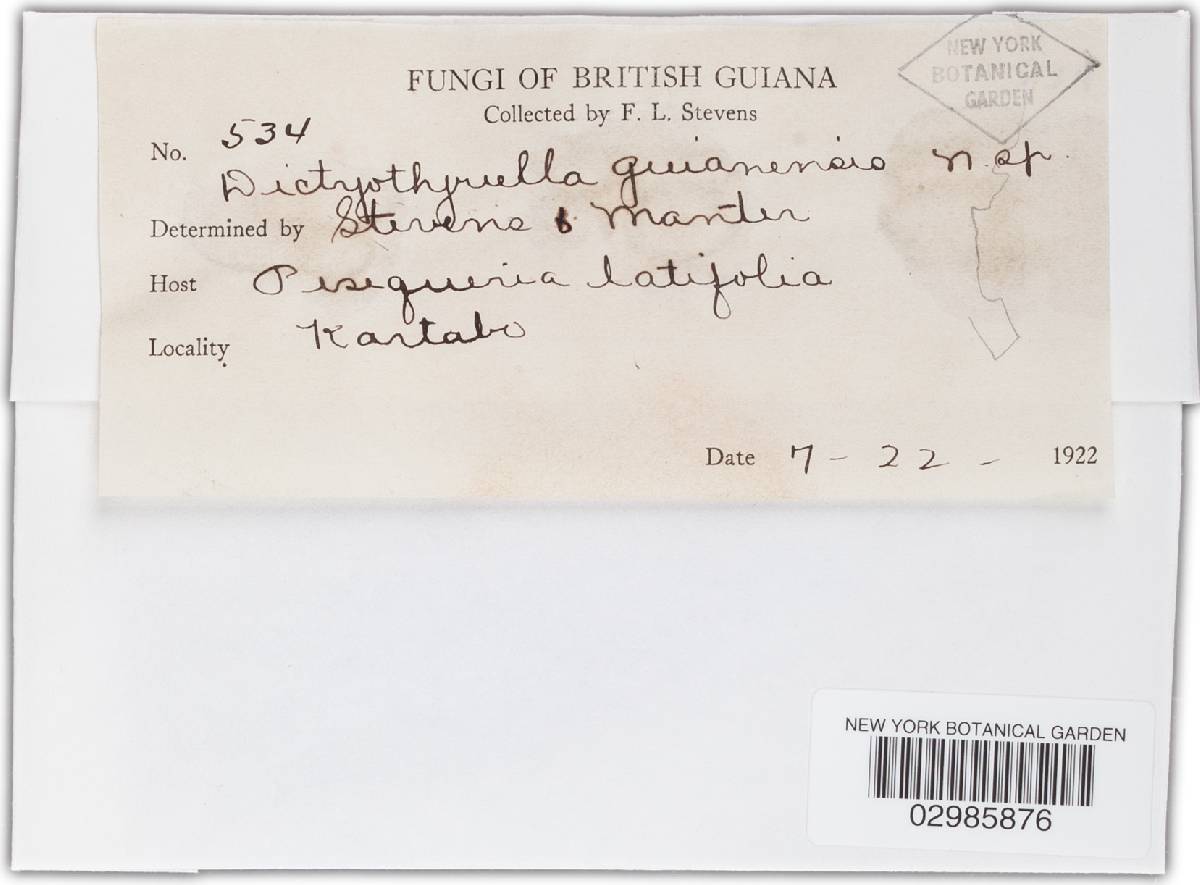 NEW YORK
BOTANICAL
GARDEN
FUNGI OF BRITISH GUIANA
Collected by F. L. Stevens
No. 534
Dictyothyriella guianensis n. sp.
Determined by Stevens & Manter
Host Posequeria latifolia
Locality Kartabo
Date 7-22- 1922
NEW YORK BOTANICAL GARDEN
02985876